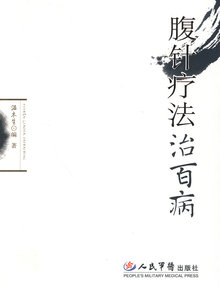 腹针疗法治百病
编著
人民军医出版社
PEOPLE'S MILITARY MEDICAL PRESS